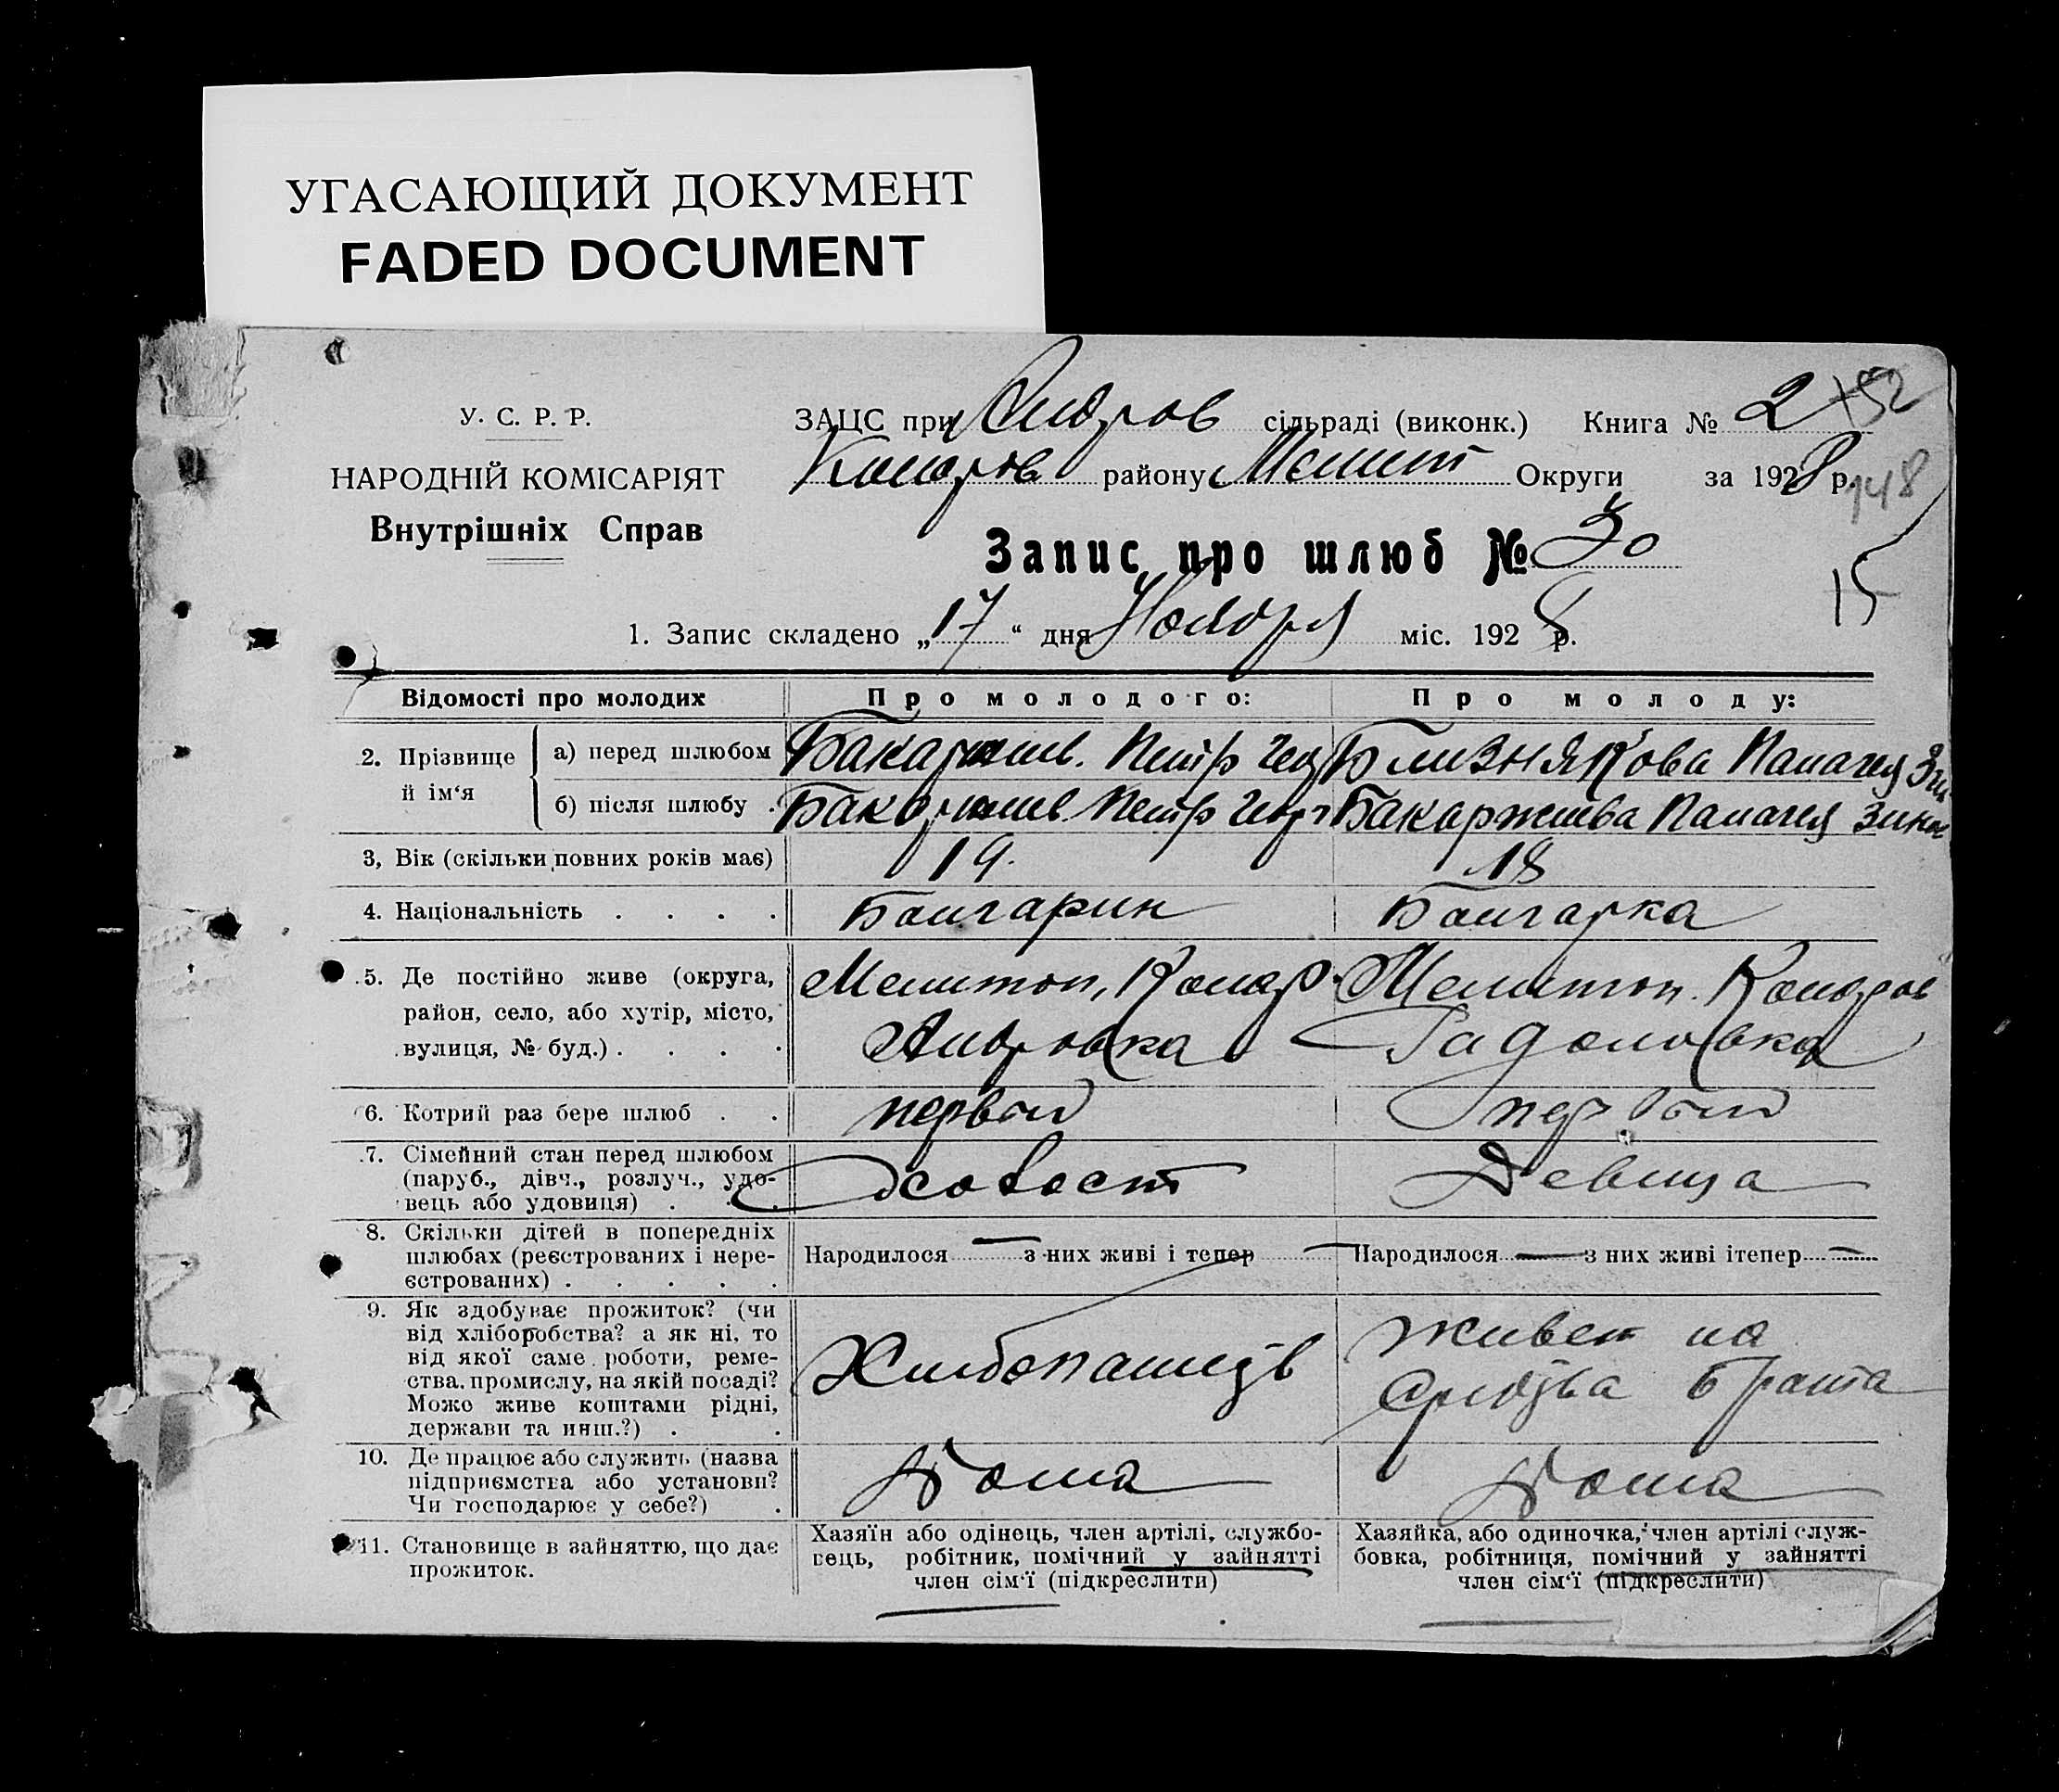 УГАСАЮЩИЙ ДОКУМЕНТ
FADED DOCUMENT
У. С. Р. Р.
НАРОДНІЙ КОМІСАРІЯТ
Внутрішніх Справ
ЗАЦС при Андров сільраді (виконк.) Книга № 2 152
Коларов району Мелит Округи за 1928 р. 148
Запис про шлюб № 30
15
1. Запис складено „17“ дня Ноября міс. 1928 р.
Відомості про молодих Про молодого: Про молоду:
2. Прізвище й ім‘я
а) перед шлюбом Бакаржиев. Петр Близнякова Палагея
б) після шлюбу . Бакаржиев Петр Георг Бакаржиева Палагея Зинов
3, Вік (скільки повних років має) 19. 18
4. Національність . . . . Болгарин Болгарка
5. Де постійно живе (округа, район, село, або хутір, місто, вулиця, № буд.) . . . .
Мелитоп, Колар. Мелитоп. Коларов
Андровка Радоловка
6. Котрий раз бере шлюб . . первый первый
7. Сімейний стан перед шлюбом (паруб., дівч., розлуч., удовець або удовиця) . . . Холост Девица
8. Скільки дітей в попередніх шлюбах (реєстрованих і нереєстрованих) . . . . .
Народилося — з них живі і тепер — Народилося — з них живі ітепер —
9. Як здобуває прожиток? (чи від хліборобства? а як ні, то від якої саме роботи, ремества, промислу, на якій посаді? Можо живе коштами рідні, держави та инш.?) . .
Хлебопашец живет на
средства брата
10. Де працює або служить (назва підприємства або установи? Чи господарює у себе?) . Дома Дома
11. Становище в зайняттю, що дає прожиток.
Хазяїн або одінець, член артілі, службовець, робітник, помічний у зайнятті член сім‘ї (підкреслити)
Хазяйка, або одиночка, член артілі службовка, робітниця, помічний у зайнятті член сім‘ї (підкреслити)